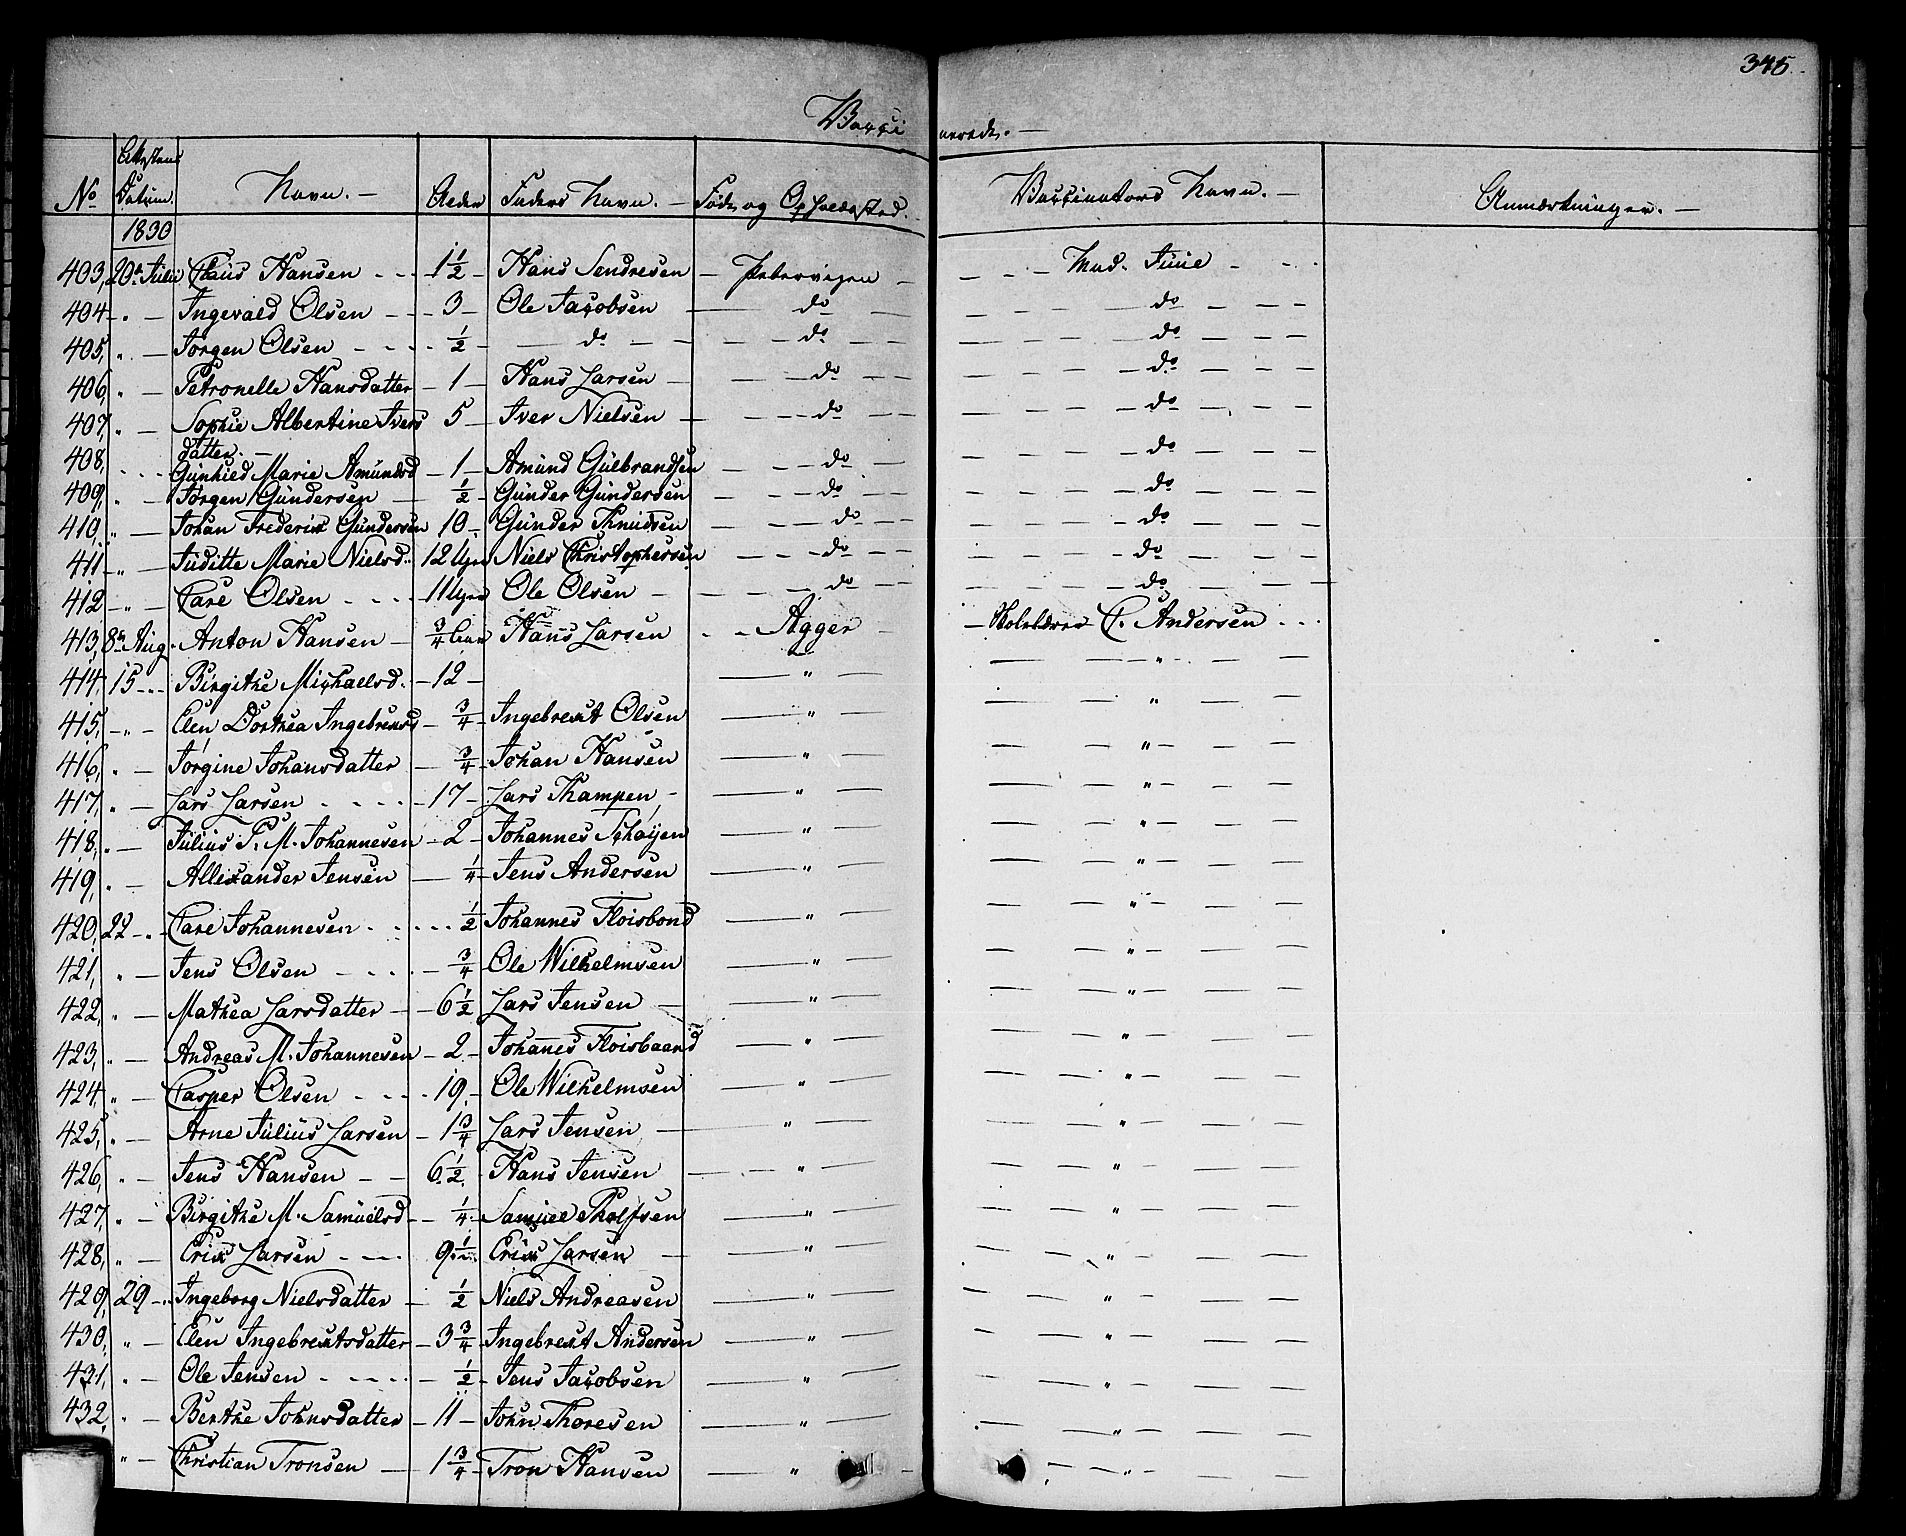 345.
Vacci nerede. —
No Attestens Datum. Navn. — Alder Faders Navn. — Føde og Opholdssted. Vaccinators Navn. — Anmærkninger. —
1830
403, 20de Julii Claus Hansen - - - 1 1/2 - Hans Sendresen - Petersvigen - - - - Mad. Juue - - -
404 - " - Ingevald Olsen - - - 3 - Ole Jacobsen — do — — do — — —
405, " - Jørgen Olsen - - - 1/2 - — do — — — do — — do — — —
406, " - Petronelle Hansdatter - 1 - Hans Larsen — — do — — do — — —
407, " - Sophie Albertine Ivers 5 - Iver Nielsen — — do — — do — — —
datter. —
408, - - - Gunhild Marie Amundsd - 1 - Amund Gulbrandsen — do — — do — — —
409, " - Jørgen Gundersen — 1/2 - Gunder Gundersen — do — — do — — —
410, " - Johan Frederik Gundersen 10 - Gunder Knudsen — do — — do — — —
411 - " - Juditte Marie Nielsd. 12 Uger Niels Christophersen — do — — do — — —
412 - " - Carl Olsen - - - 11 Uger Ole Olsen — — do — — do — — —
413, 8de Aug. Anton Hansen - 3/4 Aar Hans Larsen - - Agger — - Skolelærer C. Andersen - - -
414, 15 - - - Birgithe Michaelsd. - 12 - — " — — " — — —
415, - " - Elen Dorthea Ingebrektsd - 3/4 - Ingebrekt Olsen — " — — " — —
416, " - Jørgine Johansdatter — 3/4 - Johan Hansen — " — — " — — —
417, " - Lars Larsen - - - 17 - Lars Kampen, - — " — — " — — —
418, " - Julius P. M. Johannesen - 2 - Johannes Schøyen — " — — " — — —
419, " - Allexander Jensen — 1/4 - Jens Andersen — " — — " — — —
420, 22 - " - Carl Johannesen - - - 1/2 Johannes Floisbond — " — — " — — —
421, " - Jens Olsen - - - 3/4 Ole Wilhelmsen — " — — " — — —
422, " - Mathea Larsdatter - - 6 1/2 Lars Jensen — — " — — " — — —
423, " - Andreas M. Johannesen - 2 - Johanes Floisbaand — " — — " — — —
424, " - Casper Olsen - - - 19, - Ole Wilhelmsen — " — — " — — —
425, " - Arne Julius Larsen - 1 3/4 Lars Jensen — — " — — " — — —
426, " - Jens Hansen - - 6 1/2 - Hans Jensen — — " — — " — — —
427, " - Birgithe M. Samuelsd - - 1/4 - Samuel Tholfsen — " — — " — — —
428, " - Erik Larsen - - - 9 1/2 Erik Larsen — — " — — " — — —
429, 29 - - Ingeborg Nielsdatter - 1/2 Niels Andreasen — " — — " — — —
430, " - Elen Ingebrektsdatter - 3 3/4 - Ingebrekt Andersen — " — — " — — —
431, " - Ole Jensen - - - 1/2 - Jens Jacobsen — " — — " — — —
432, " - Berthe Johnsdatter - 11 - John Thoresen — " — — " — — —
" - Christian Tronsen — 1 3/4 - Tron Hansen — " — — " — — —